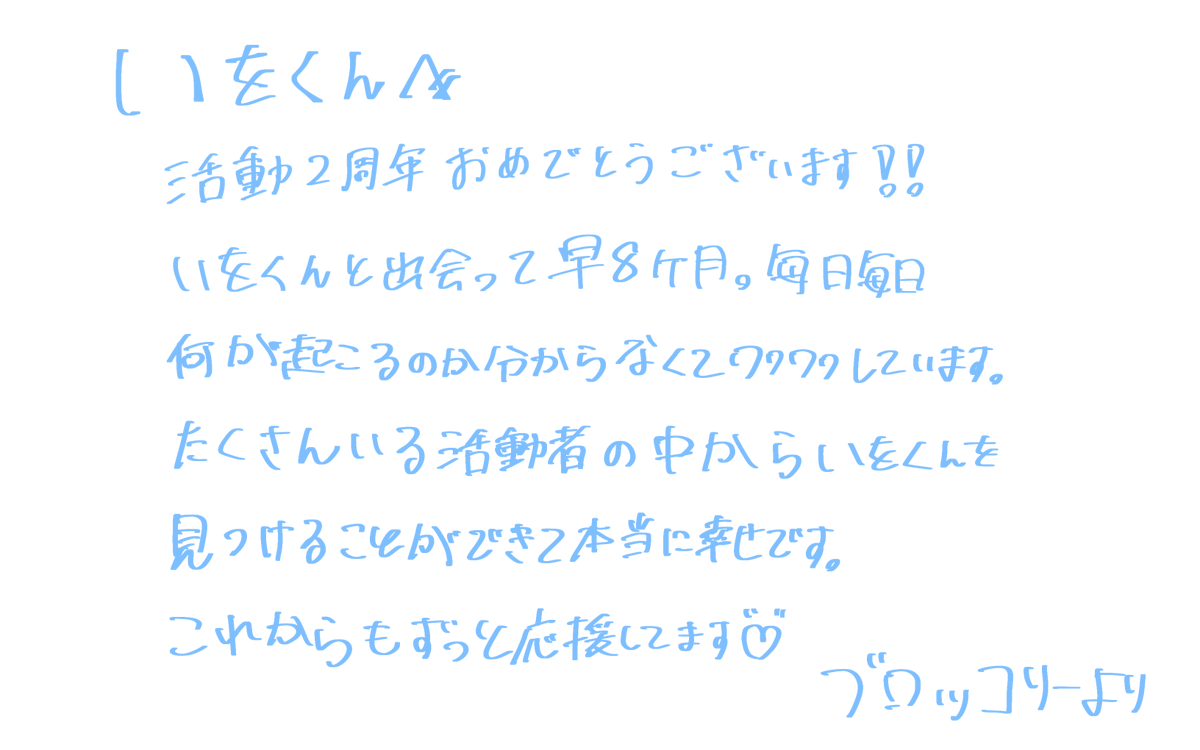 いをくんへ
活動2周年おめでとうございます!!
いをくんと出会って早8ケ月。毎日毎日
何が起こるのか分からなくてワクワクしています。
たくさんいる活動者の中からいをくんを
見つけることができて本当に幸せです。
これからもずっと応援してます♡
ブロッコリーより